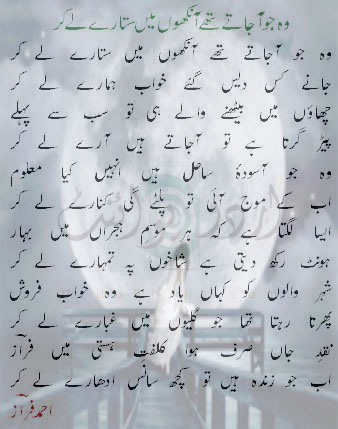 وہ جو آ جاتے تھے آنکھوں میں ستارے لے کر
وہ جو آجاتے تھے آنکھوں میں ستارے لے کر
جانے کس دیس گئے خواب ہمارے لے کر
چھاؤں میں بیٹھنے والے ہی تو سب سے پہلے
پیڑ گرتا ہے تو آجاتے ہیں آرے لے کر
وہ جو آسودۂ ساحل ہیں انہیں کیا معلوم
اب کے موج آئی تو پلٹے گی کنارے لے کر
ایسا لگتا ہے کہ ہر موسم ہجراں میں بہار
ہونٹ رکھ دیتی ہے شاخوں پہ تمہارے لے کر
شہر والوں کو کہاں یاد ہے وہ خواب فروش
پھرتا رہتا تھا جو گلیوں میں غبارے لے کر
نقدِ جاں صرف ہوا کلفت ہستی میں فرازؔ
اب جو زندہ ہیں تو کچھ سانس ادھارے لے کر
احمد فرازؔ